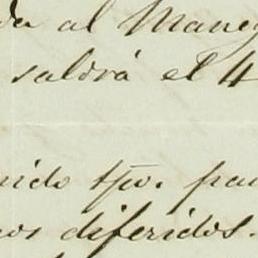 da al Maneg
saldrá el 4
nido tpo. pa
nos diferidos.